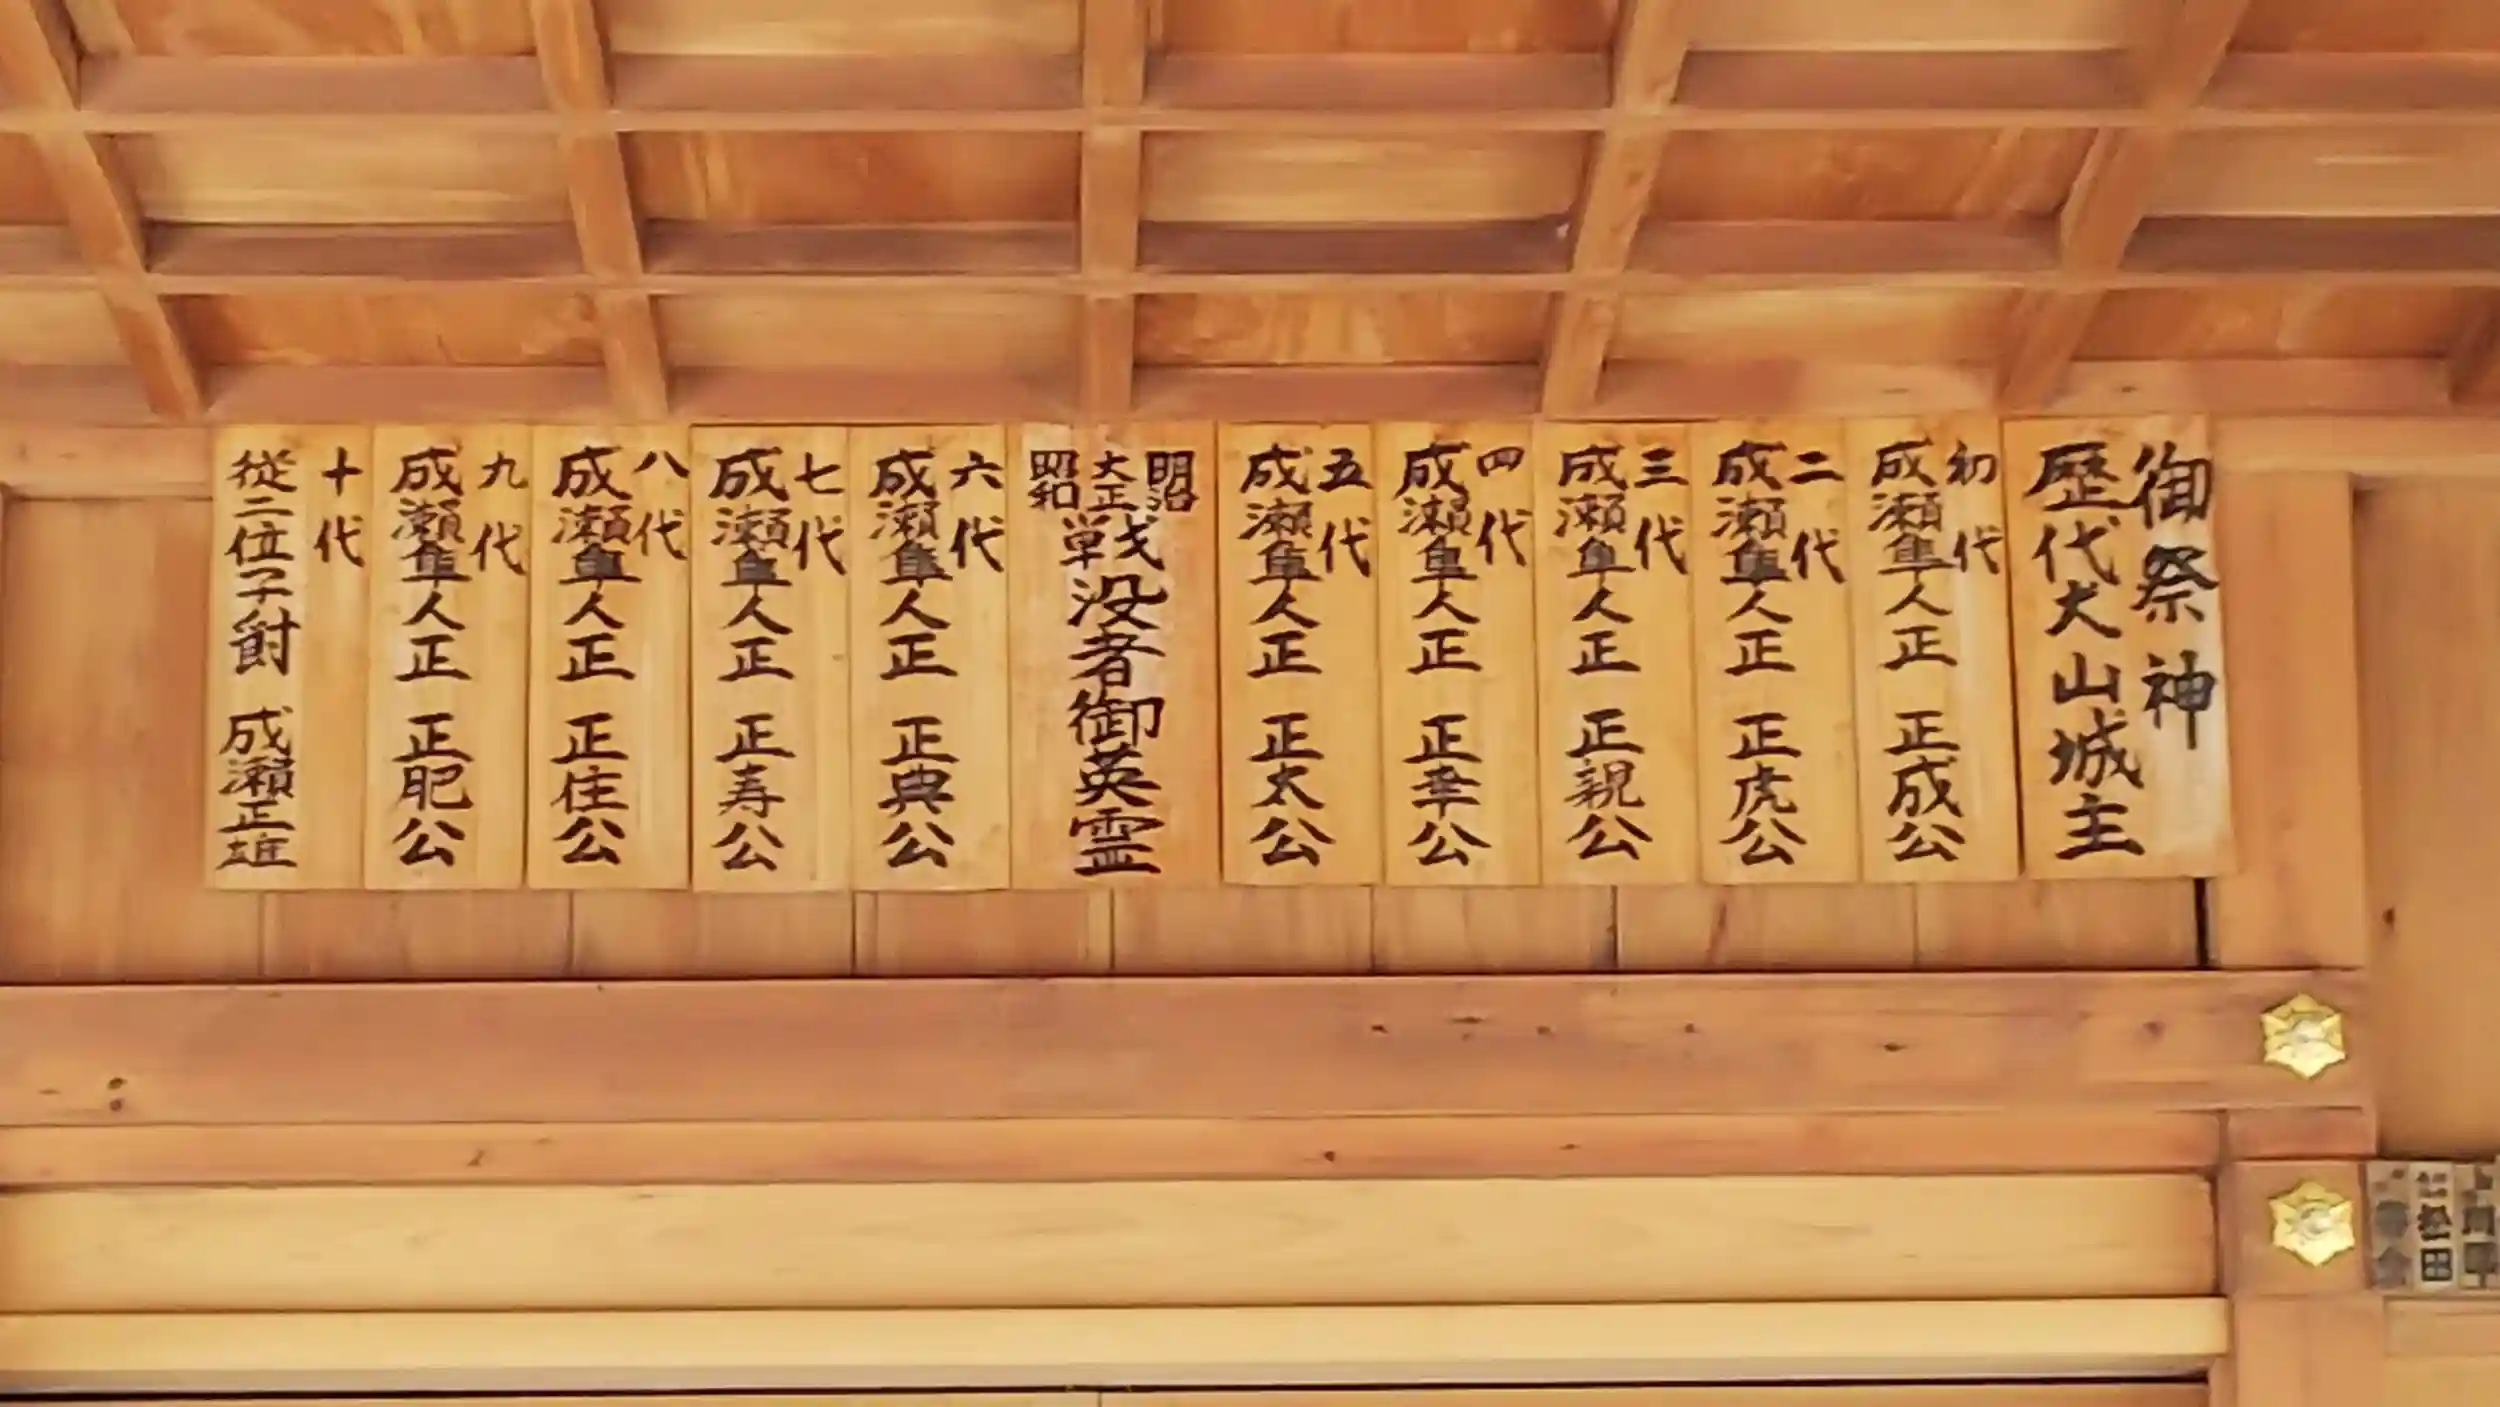 御祭神
歴代犬山城主
初代
成瀬隼人正 正成公
二代
成瀬隼人正 正虎公
三代
成瀬隼人正 正親公
四代
成瀬隼人正 正幸公
五代
成瀬隼人正 正太公
明治
大正
昭和
戦没者御英霊
六代
成瀬隼人正 正典公
七代
成瀬隼人正 正寿公
八代
成瀬隼人正 正住公
九代
成瀬隼人正 正肥公
十代
従二位子爵 成瀬正雄
松田